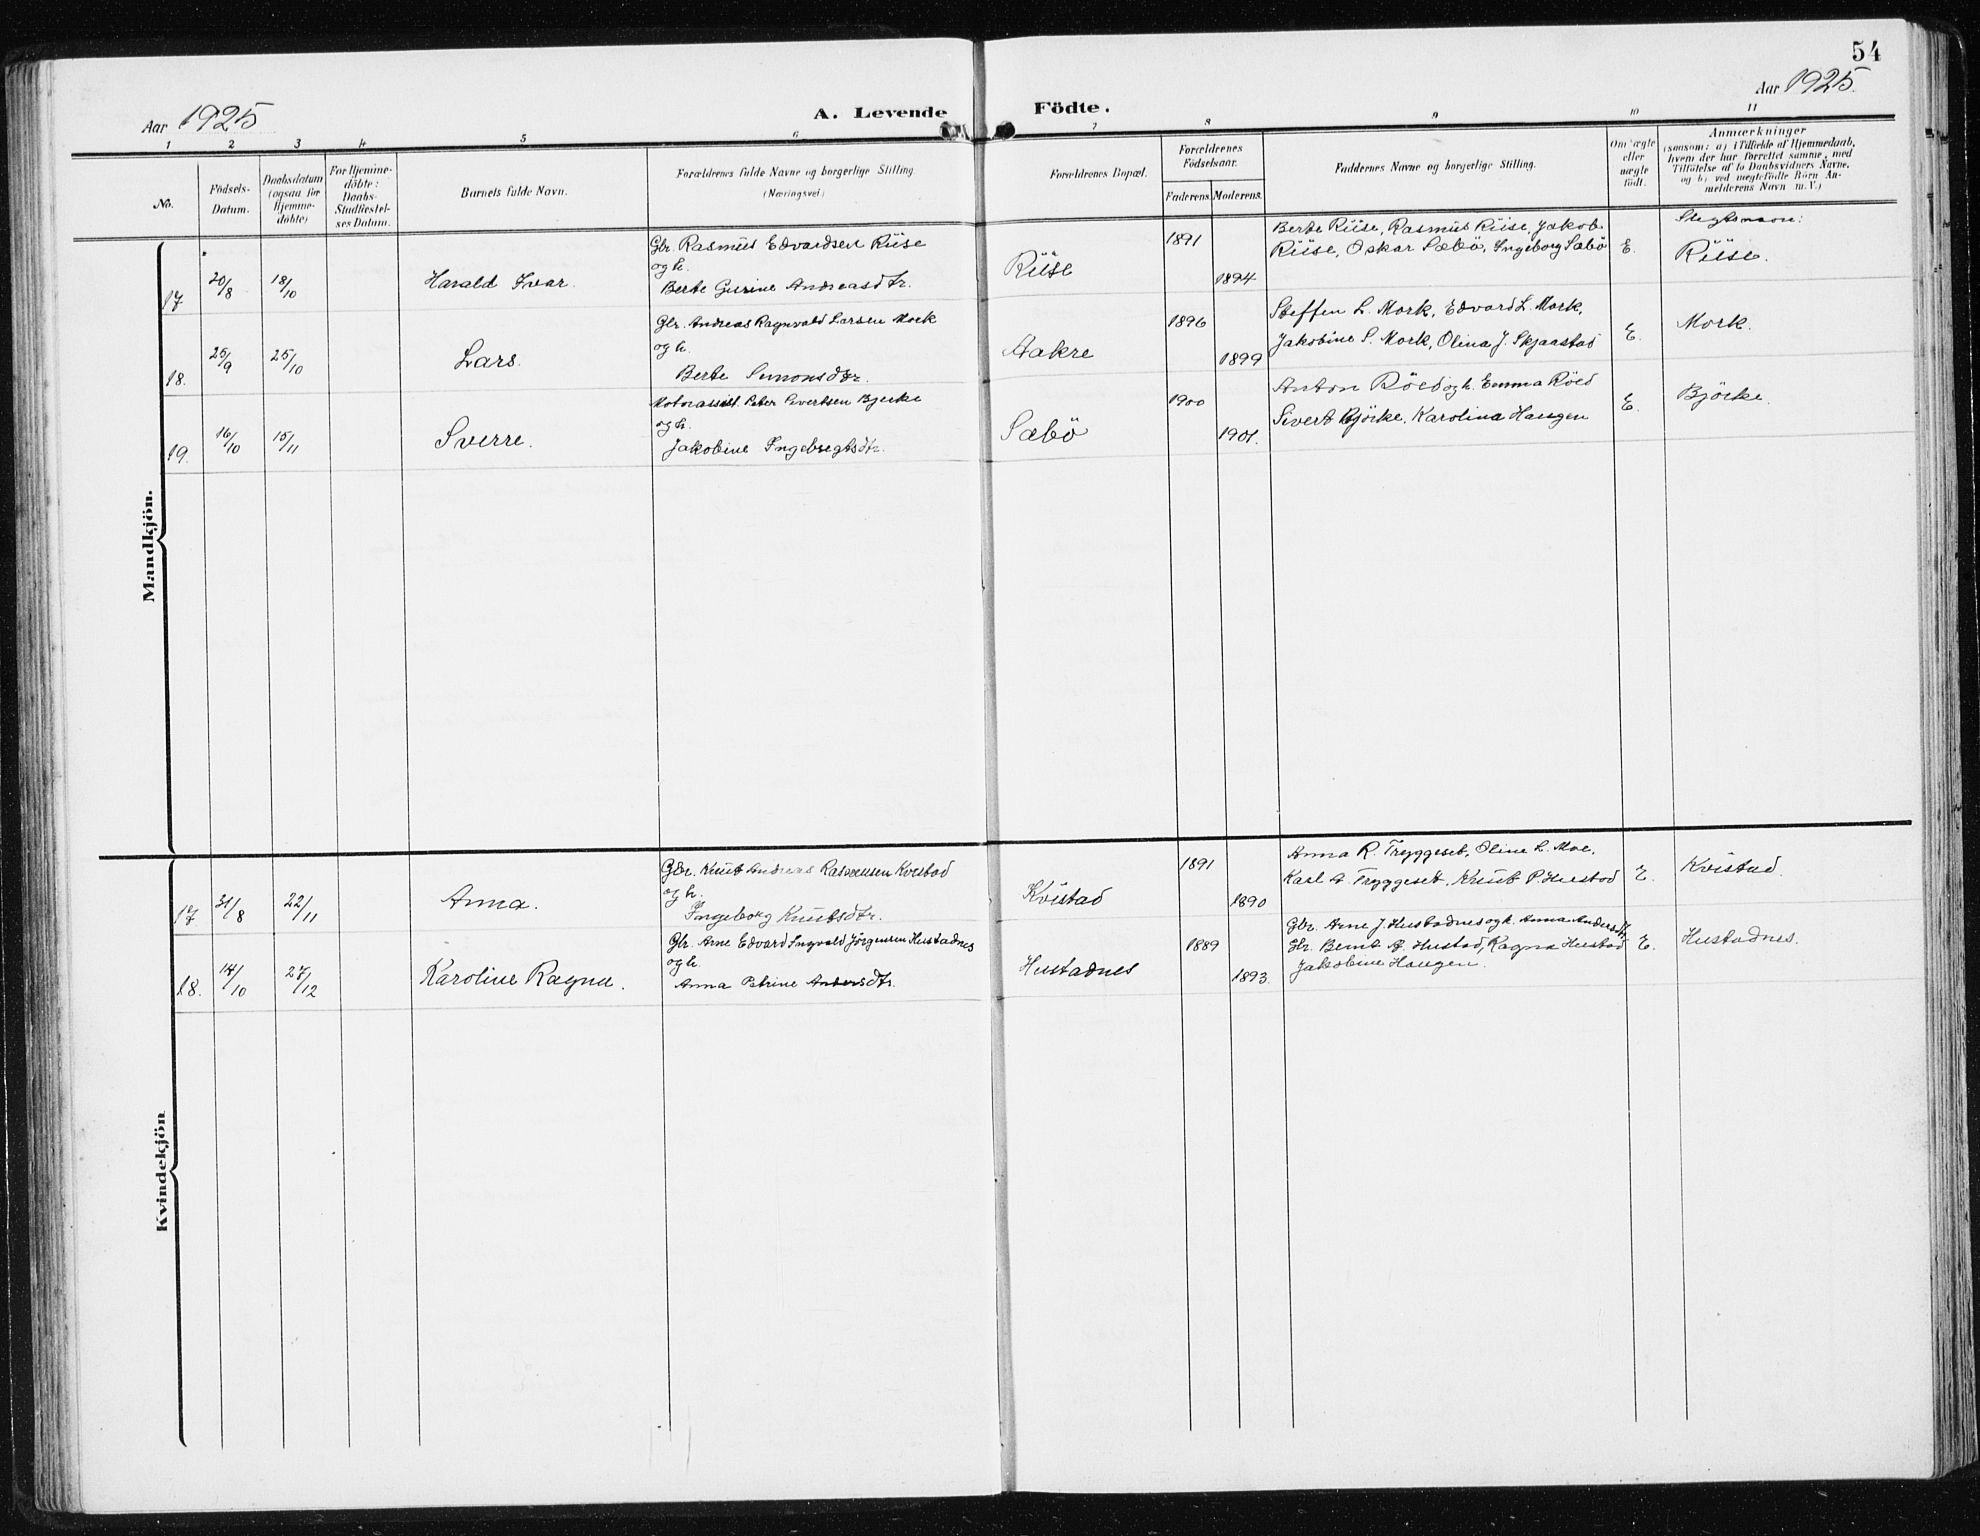 54
Aar 1925
A. Levende Födte.
Aar 1925.
1 2 3 4 5 6 7 8 9 10 11
No.
Födsels-
Datum.
Daabsdatum
(ogsaa for
Hjemme-
döbte)
For Hjemme-
döbte:
Daabs-
Stadfæstel-
ses Datum.
Barnets fulde Navn.
Forældrenes fulde Navne og borgerlige Stilling
(Næringsvei)
Forældrenes Bopæl.
Forældrenes
Födselsaar.
Faderens Moderens.
Faddernes Navne og borgerlige Stilling.
Om ægte
eller
uægte
födt.
Anmærkninger
(saasom: a) i Tilfælde af Hjemmedaab,
hvem der har forrettet samme, med
Tilföielse af to Daabsvidners Navne,
og b) ved uægtefödte Börn An-
melderens Navn m. V.)
Mandkjön.
17
20/8
18/10
Harald Ivar.
Gbr. Rasmus Edvardsen Riise
og h.
Berte Gurine Andreasdtr.
Riise
1891
1894
Berte Riise, Rasmus Riise, Jakob
Riise, Oskar Sæbö, Ingeborg Sæbö
E.
Slegtsnavn:
Riise.
18.
25/9
25/10
Lars.
Gbr. Andreas Ragnvald Larsen Mork
og h.
Berte Simonsdtr.
Aakre
1896
1899
Steffen L. Mork, Edvard L. Mork,
Jakobine S. Mork, Olina J. Skjaastad
E.
Mork.
19.
16/10
15/11
Sverre.
Motorassist. Peter Sivertsen Bjerke
og h.
Jakobine Ingebregtsdtr.
Sæbö
1900
1901.
Anton Röed og h. Emma Röed
Sivert Björke, Karolina Haugen
E.
Björke.
Kvindekjön
17
31/8
22/11
Anna.
Gbr. Knut Andreas Rasmussen Kvistad
og h.
Ingeborg Knutsdtr.
Kvistad
1891
1890
Anna R. Tryggeset, Oline L. Moe,
Karl A Tryggeset, Knut P. Hustad
E.
Kvistad.
18.
14/10
27/12
Karoline Ragna.
Gbr. Arne Edvard Ingvald Jörgensen Hustadnes
og h.
Anna Petrine Andersdtr.
Hustadnes
1889
1893.
Gbr. Arne J. Hustadnes og h. Anna Andersdtr,
Gbr. Bernt A. Hustad, Ragna Hustad
Jakobine Haugen.
E.
Hustadnes.